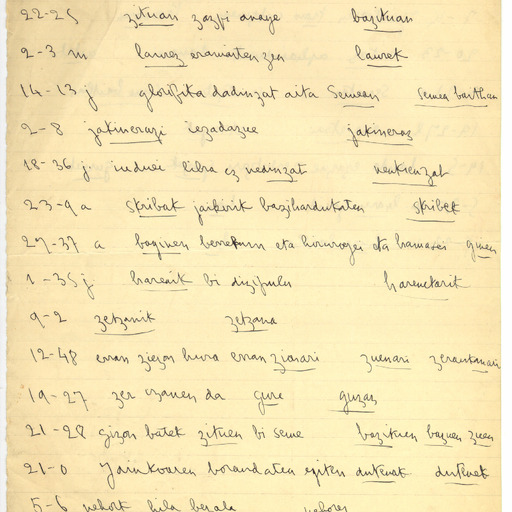 22-25 zituan zazpi anaye bazituan
2-3 m laurez eramaiten zen laurek
14-13 j glorifika dadinzat aita Semean Semea baithan
2-8 jakinerazi iezadazue jakineraz
18-36 j
23-9 a skribak jaikirik bazihardukaten skribek
27-37 a baginen berrehun eta hirurogei eta hamasei ginen
1-35 j harenik bi dizipulu harenetarik
9-2 zetzanik zetzana
12-48 erran ziezon hura erran ziosari zuenari
19-27 zer izanen da gure guzaz
21-28 gizon batek zituen bi seme bazituen bazuen zuen
21-0 Jainkoaren borondatea egiten dutenak dutenek
5-6 nehork hila bezala nehorez